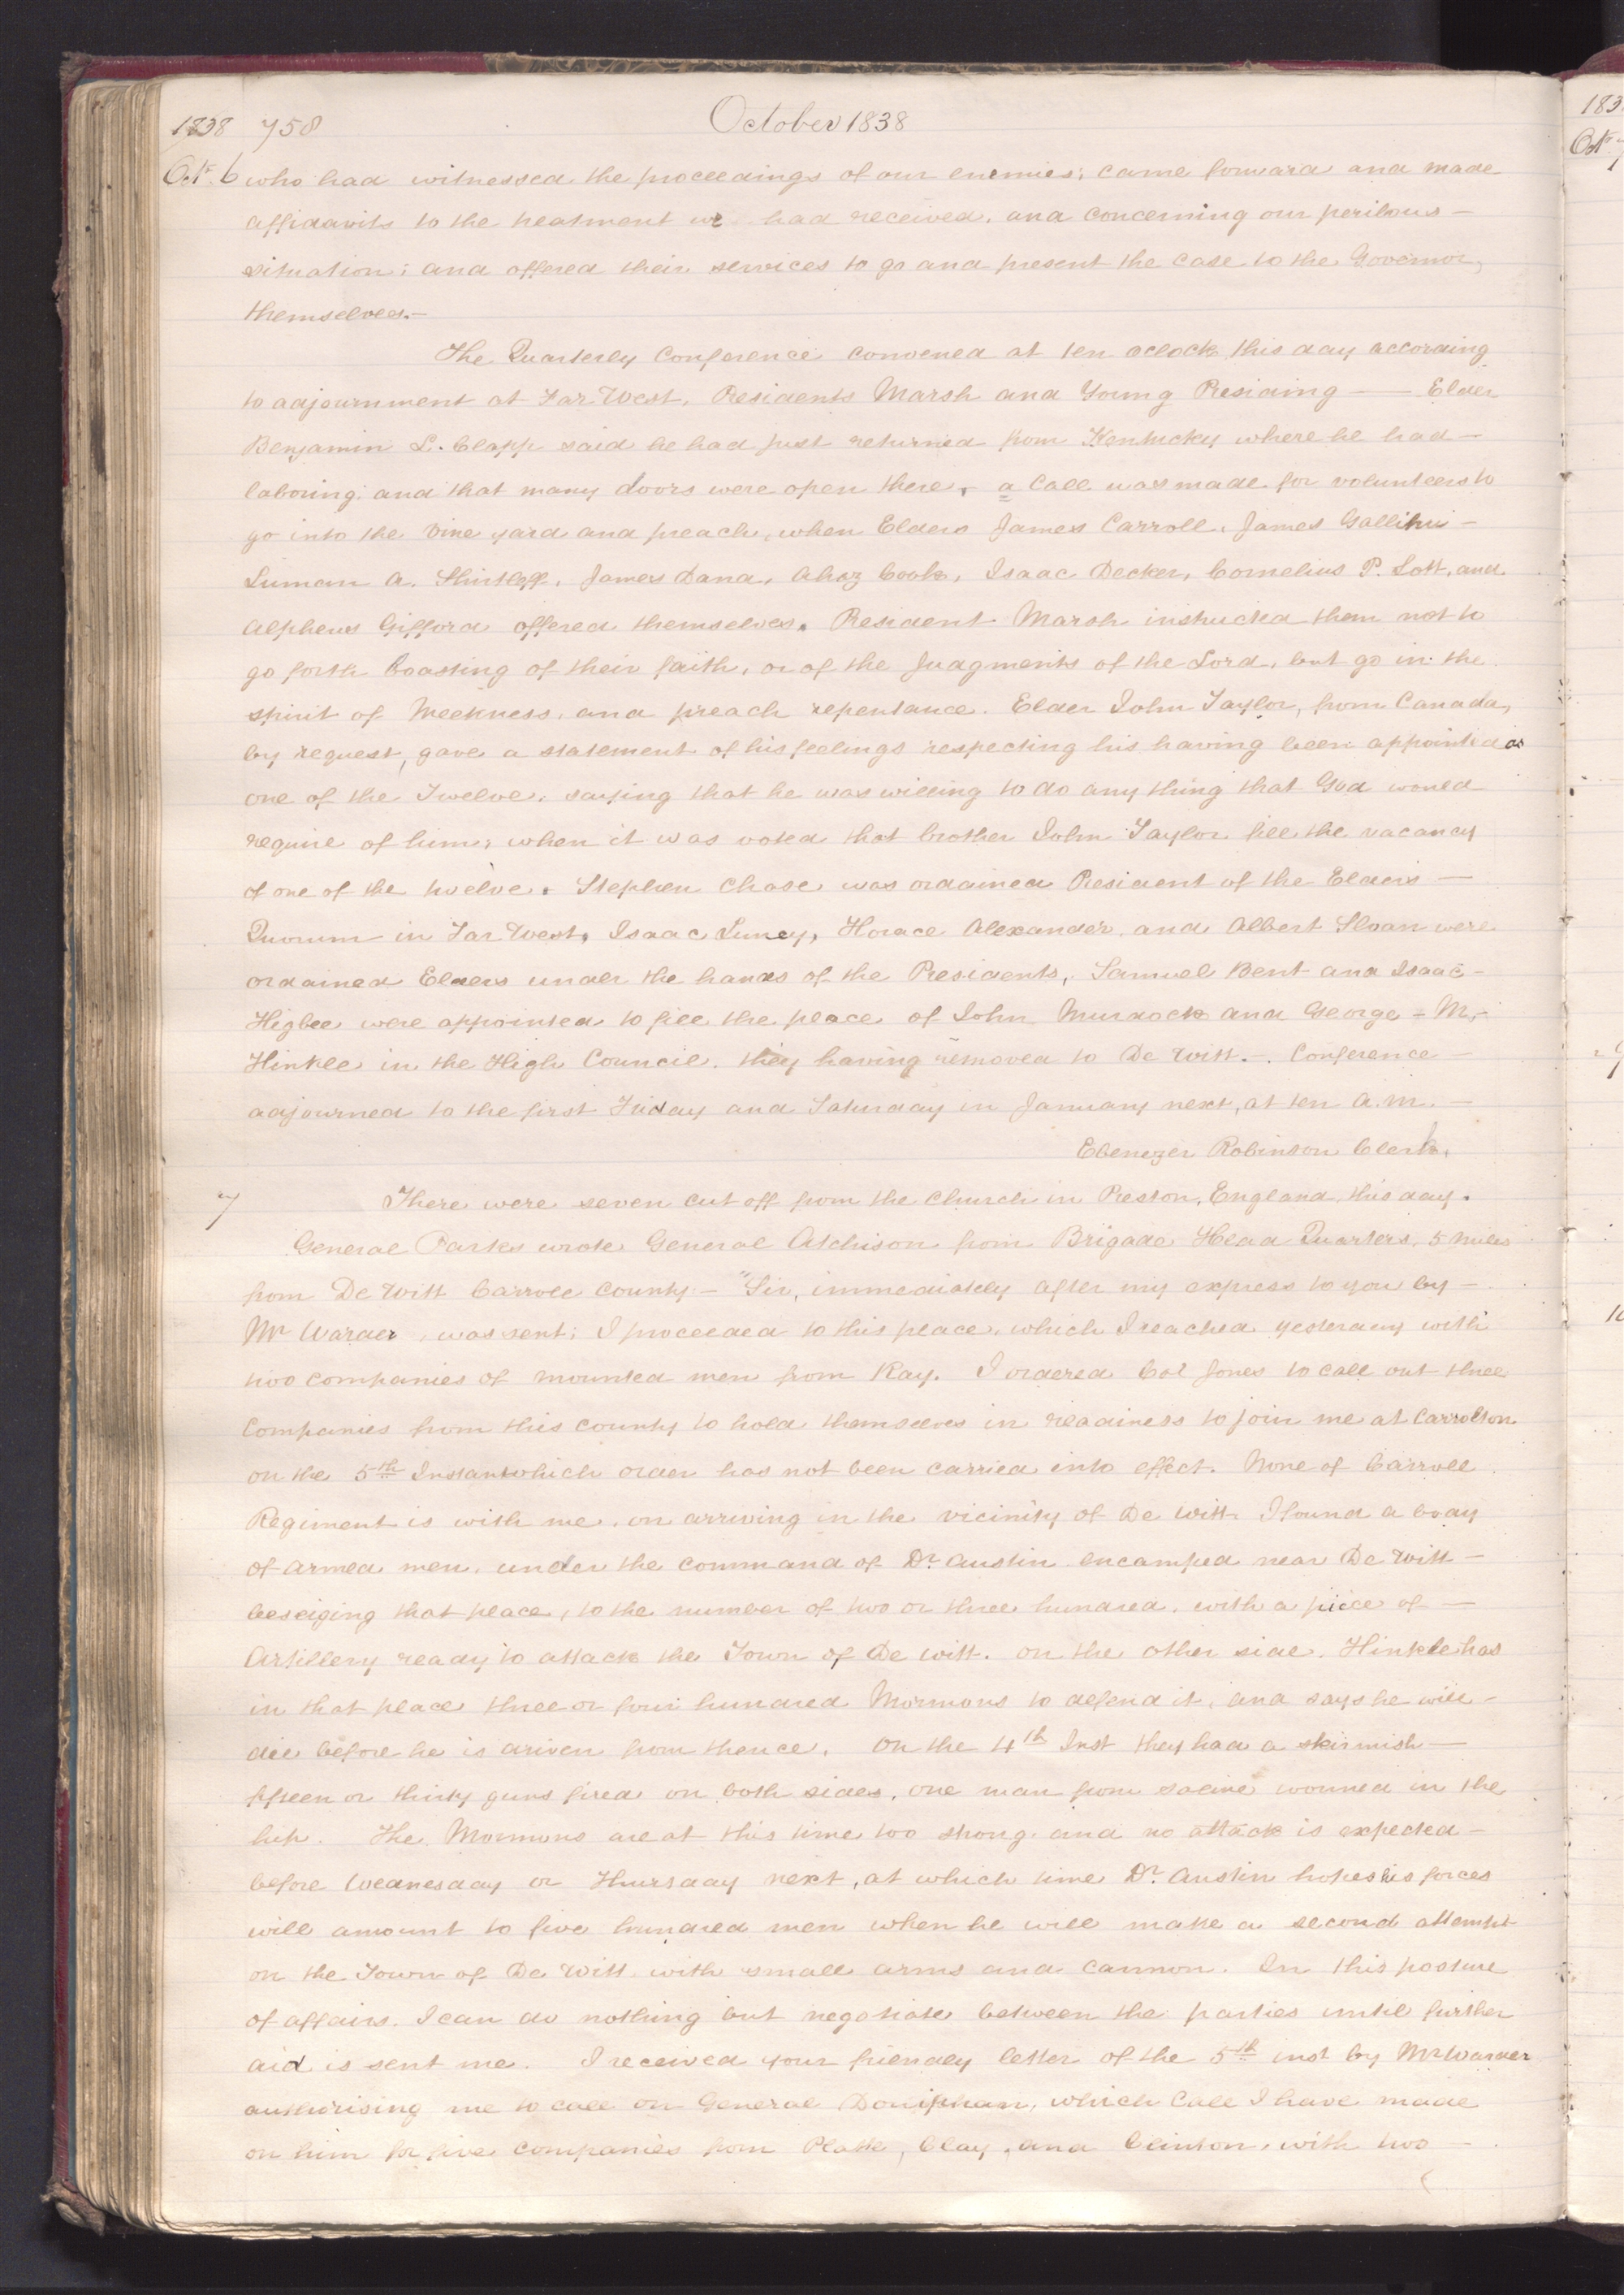 1838 758 October 1838
Oct. 6 who had witnessed the proceedings of our enemies; came forward and made
affidavits to the treatment we had received, and concerning our perilous —
situation; and offered their services to go and present the case to the Governor,
themselves.—
The Quarterly Conference convened at ten oclock this day according
to adjournment at Far West, Presidents Marsh and Young Presiding — Elder
Benjamin L. Clapp said he had just returned from Kentucky where he had —
laboring and that many doors were open there, a Call was made for volunteers to
go into the vine yard and preach, when Elders James Carroll, James Gallihu —
Luman A. Shirtliff, James Dana, Ahaz Cook, Isaac Decker, Cornelius P. Lott, and
Alpheus Gifford offered themselves. President Marsh instructed them not to
go forth boasting of their faith, or of the Judgments of the Lord, but go in the
spirit of Meekness, and preach repentance. Elder John Taylor, from Canada,
by request, gave a statement of his feelings respecting his having been appointed as
one of the Twelve, saying that he was willing to do any thing that God would
require of him; when it was voted that brother John Taylor fill the vacancy
of one of the twelve. Stephen Chase was ordained President of the Elders —
Quorum in Far West, Isaac Luney, Horace Alexander, and Albert Sloan were
ordained Elders under the hands of the Presidents, Samuel Bent and Isaac —
Higbee were appointed to fill the place of John Murdock and George = M. —
Hinkle in the High Council, they having removed to De Witt. —. Conference —
adjourned to the first Friday and Saturday in January next, at ten a.m. —
Ebenezer Robinson Clerk.
7 There were seven cut off from the church in Preston, England, this day.
General Parks wrote General Atchison from Brigade Head Quarters, 5 miles
from De Witt Carroll County — "Sir, immediately after my express to you by —
Mr Warder, was sent; I proceeded to this place, which I reached yesterday with
two companies of mounted men from Ray. I ordered Col Jones to call out three
Companies from this county to hold themselves in readiness to join me at Carrolton
on the 5th Instant which order has not been carried into effect. None of Carroll
Regiment is with me, on arriving in the vicinity of De Witt I found a body
of armed men, under the command of Dr. Austin encamped near De Witt —
beseiging that place, to the number of two or three hundred, with a piece of —
Artillery ready to attack the Town of De Witt. on the other side, Hinkle has
in that place three or four hundred Mormons to defend it, and says he will —
die before he is driven from thence. On the 4th Inst they had a skirmish —
fifteen or thirty guns fired on both sides, one man from saline wounned in the
hip. The Mormons are at this time too strong, and no attack is expected —
before Wednesday or Thursday next, at which time Dr. Austin hopes his forces
will amount to five hundred men when he will make a second attempt
on the Town of De Witt with small arms and cannon. In this posture
of affairs, I can do nothing but negotiate between the parties until further
aid is sent me. I received your friendly letter of the 5th inst by Mr Warder
authorising me to call on General Doniphan, which Call I have made
on him for five companies from Platte, Clay, and Clinton, with two —
183
Oct 7
9
10